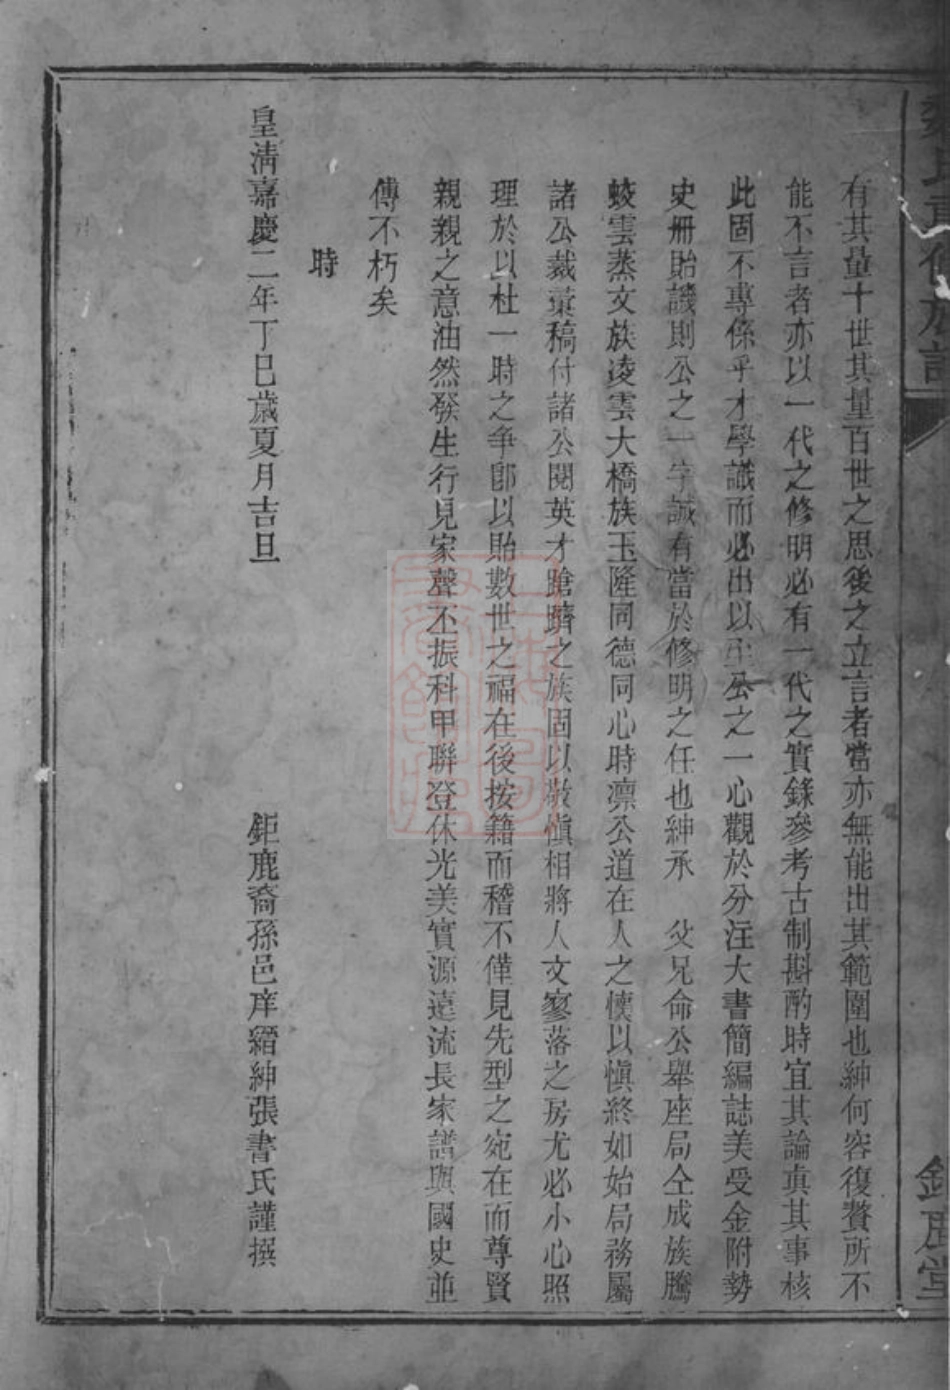 魏氏重修族譜
鉅鹿堂
有其量十世其量百世之思後之立言者當亦無能出其範圍也紳何容復贅所不
能不言者亦以一代之修明必有一代之實錄參考古制斟酌時宜其論真其事核
此固不專係乎才學識而必出以至公之一心觀於分注大書簡編誌美受金附勢
史册貽譏則公之一字誠有當於修明之任也紳承 父兄命公舉座局仝成族騰
蛟雲蒸文族凌雲大橋族玉隆同德同心時凛公道在人之懷以慎終如始局務屬
諸公裁彙稿付諸公閱英才蹌躋之族固以敬慎相將人文寥落之房尤必小心照
理於以杜一時之争卽以貽數世之福在後按籍而稽不僅見先型之宛在而尊賢
親親之意油然發生行見家聲丕振科甲聯登休光美實源遠流長家譜與國史並
傳不朽矣
時
皇淸嘉慶二年丁巳歲夏月吉旦
鉅鹿裔孫邑庠縉紳張書氏謹撰